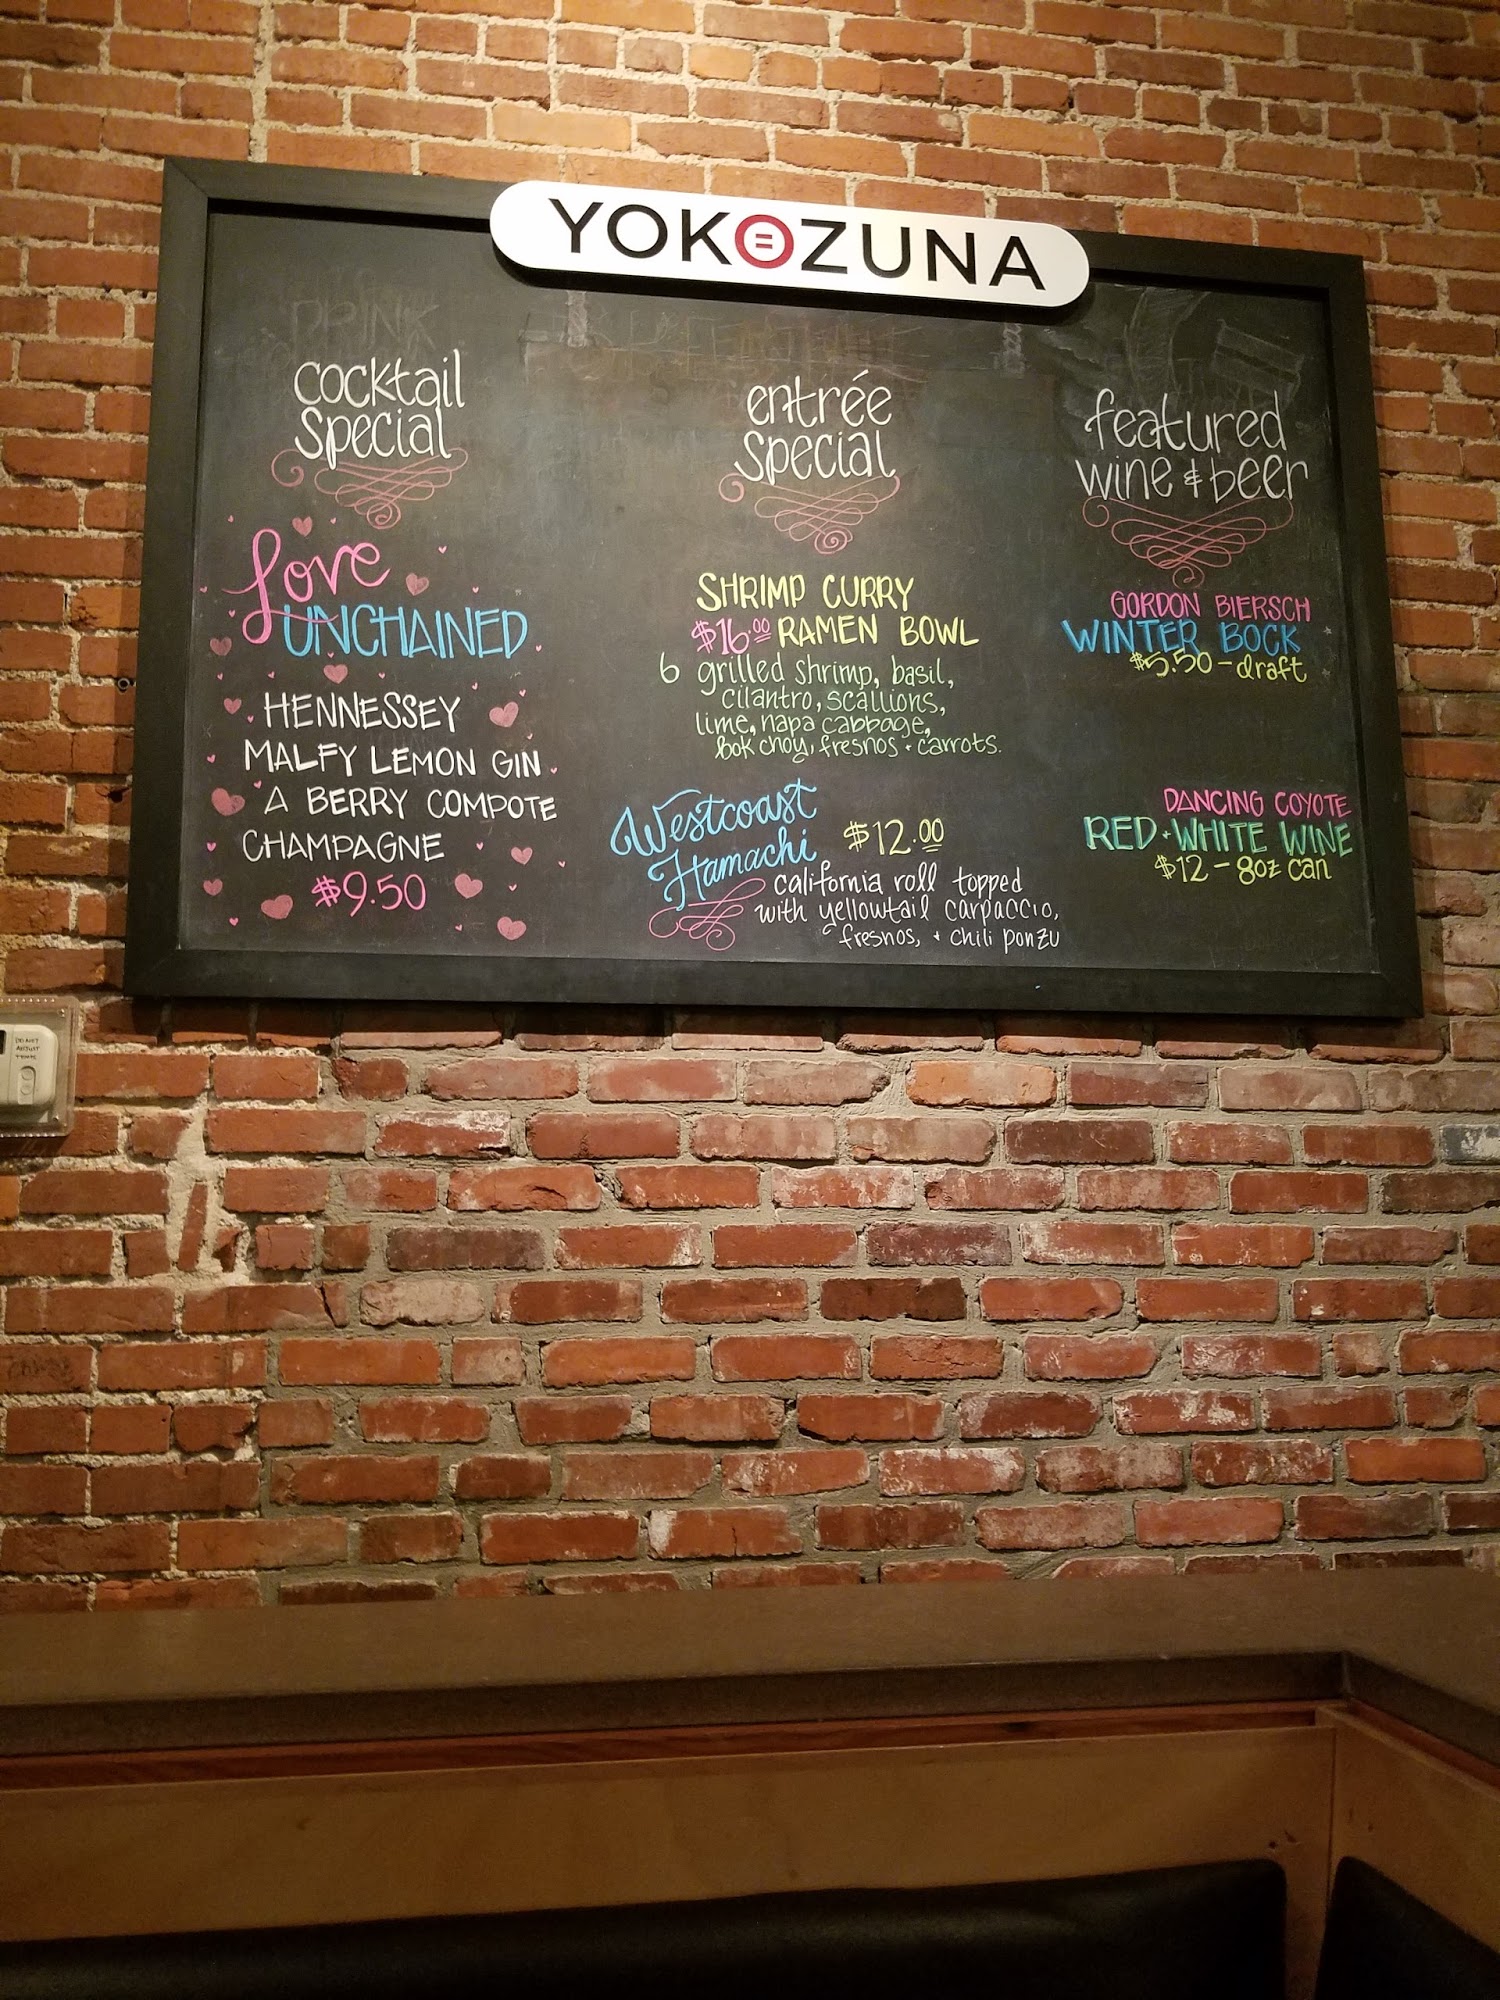 YOKOZUNA
DRINK
cocktail
special
Love
UNCHAINED
HENNESSEY
MALFY LEMON GIN
A BERRY COMPOTE
CHAMPAGNE
$9.50
entrée
special
SHRIMP CURRY
$16.00 RAMEN BOWL
6 grilled shrimp, basil,
cilantro, scallions,
lime, napa cabbage,
bok choy, fresnos + carrots.
Westcoast
Hamachi $12.00
california roll topped
with yellowtail carpaccio,
fresnos, + chili ponzu
featured
wine & beer
GORDON BIERSCH
WINTER BOCK
$5.50 - draft
DANCING COYOTE
RED + WHITE WINE
$12 - 8oz can
DO NOT
ADJUST
TEMPS